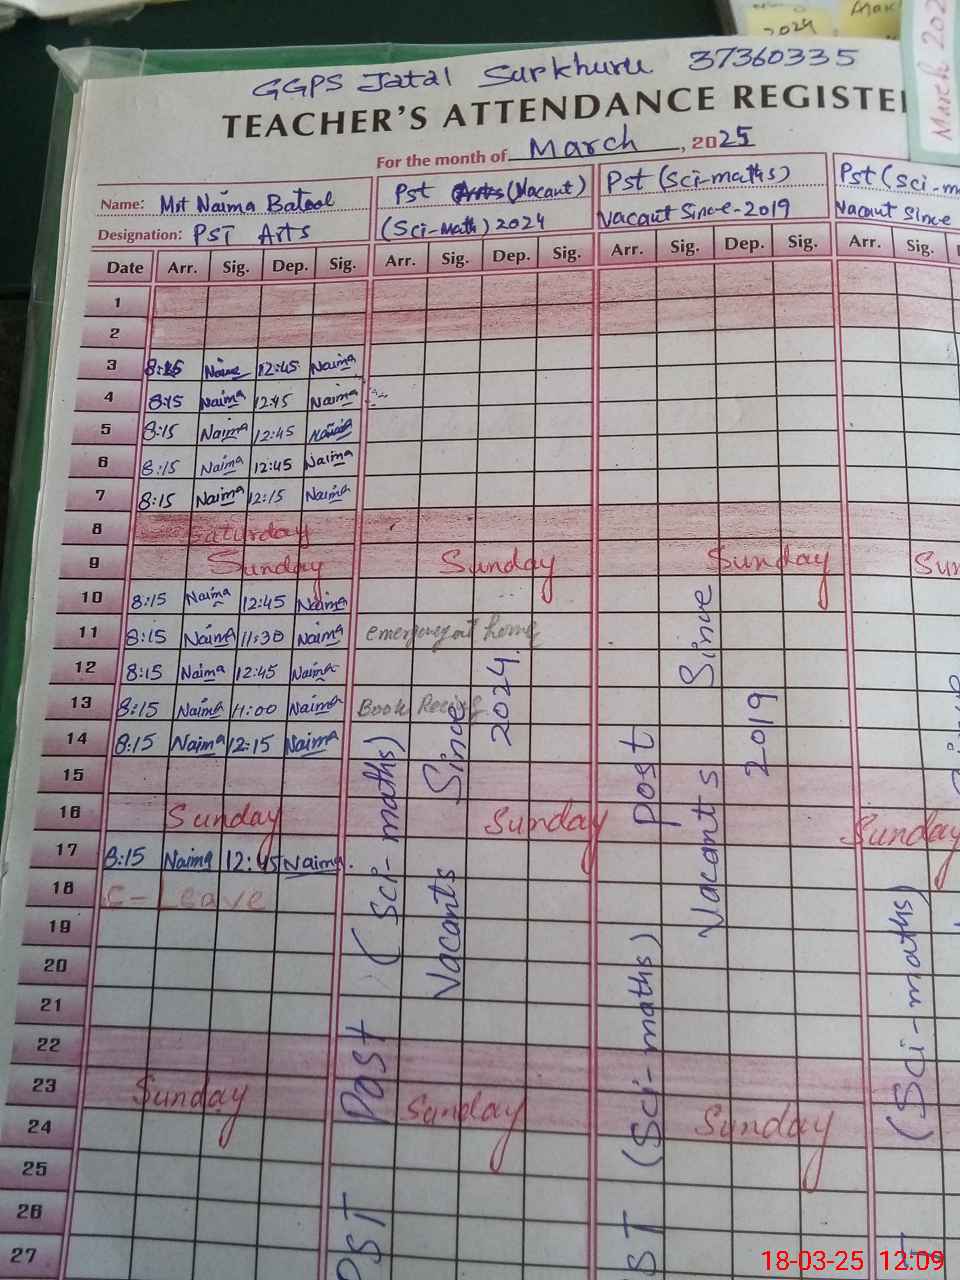 2024
March 202
GGPS Jatal Surkhuru 37360335
TEACHER'S ATTENDANCE REGISTE
For the month of March, 2025
Name: Mst Naima Batool Pst (Vacant) Pst (Sci-maths) Pst (Sci-m
Designation: PST Arts (Sci-Math) 2024 Vacant Since-2019 Vacant Since
Date Arr. Sig. Dep. Sig. Arr. Sig. Dep. Sig. Arr. Sig. Dep. Sig. Arr. Sig.
1
2
3 8:15 Naima 12:45 Naima
4 8:15 Naima 12:45 Naima
5 8:15 Naima 12:45 Naima
6 8:15 Naima 12:45 Naima
7 8:15 Naima 12:15 Naima
8 Saturday
9 Sunday Sunday Sunday Sun
10 8:15 Naima 12:45 Naima
11 8:15 Naima 11:30 Naima emergency at home
12 8:15 Naima 12:45 Naima
13 8:15 Naima 11:00 Naima Book
14 8:15 Naima 12:15 Naima
15
16 Sunday Sunday Sunday
17 8:15 Naima 12:45 Naima.
18 C-Leave
19
20
21
22
23 Sunday Sunday Sunday
24
25
26
27
PST Post (Sci-maths)
Vacants Since
2024
ST (Sci-maths) post
Vacants Since
2019
(Sci-maths)
18-03-25 12:09